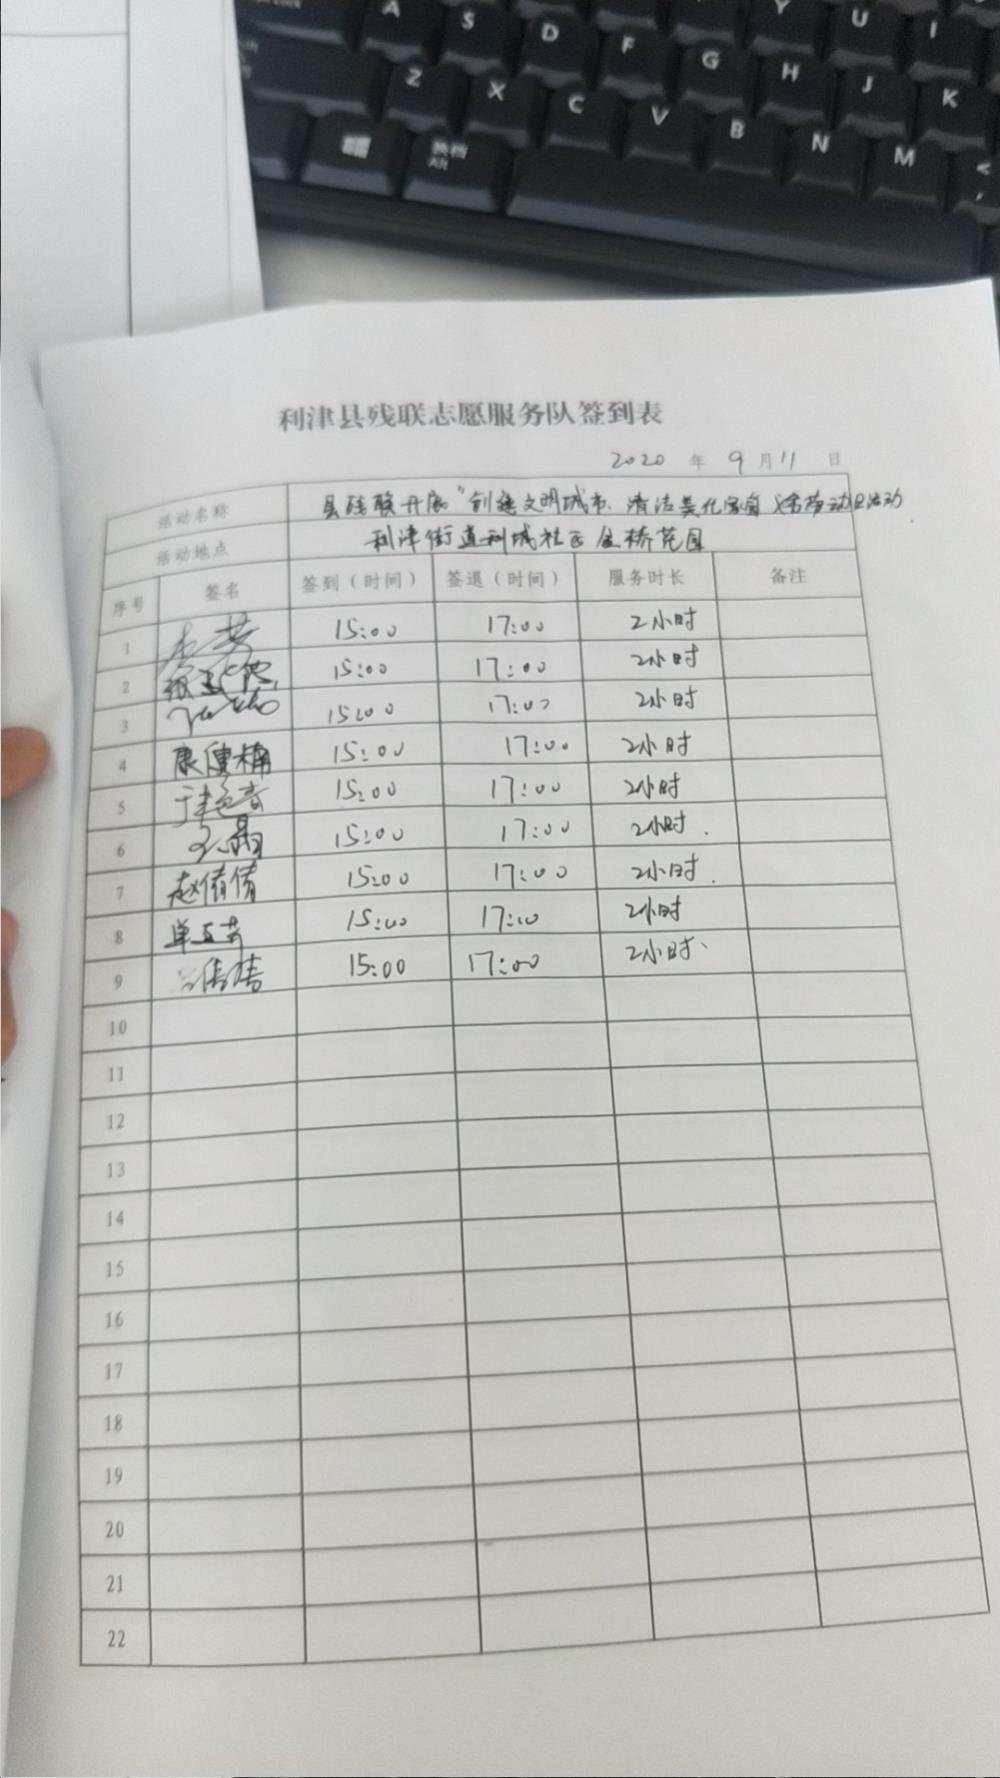 A S D F G H J K
Y U I
Z X C V B N M <
换档
Alt
利津县残联志愿服务队签到表
2020 年 9 月 11 日
活动名称 县残联开展"创建文明城市、清洁美化家园"义务劳动日活动
活动地点 利津街道利城社区金桥花园
序号 签名 签到（时间） 签退（时间） 服务时长 备注
1 15:00 17:00 2小时
2 15:00 17:00 2小时
3 15:00 17:00 2小时
4 康健楠 15:00 17:00 2小时
5 15:00 17:00 2小时
6 王晶 15:00 17:00 2小时
7 赵倩倩 15:00 17:00 2小时
8 15:00 17:00 2小时
9 15:00 17:00 2小时
10
11
12
13
14
15
16
17
18
19
20
21
22